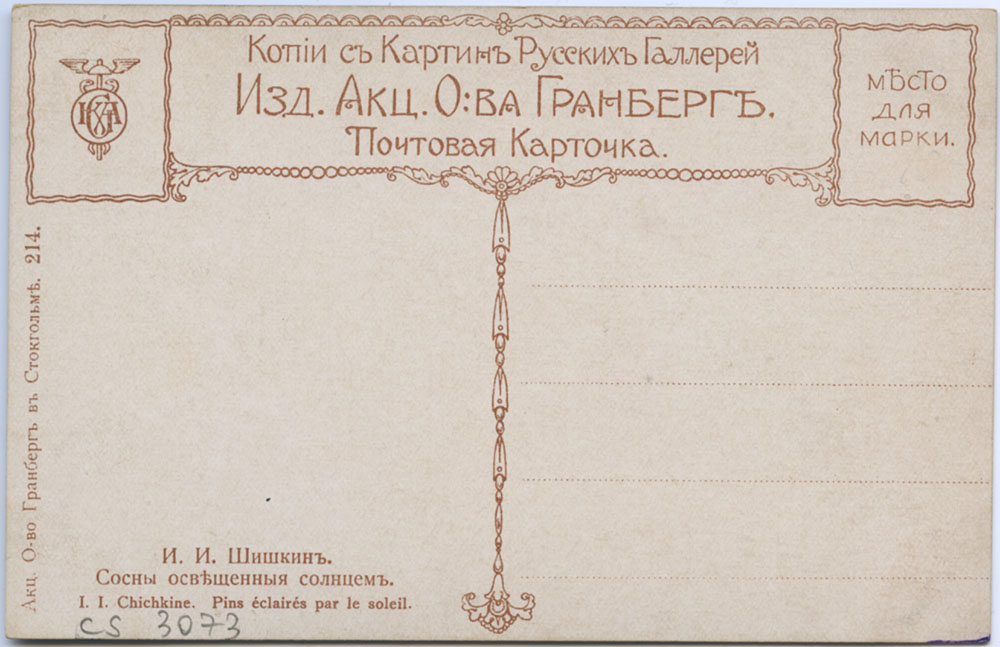 Копіи съ Картинъ Русскихъ Галлерей
Изд. Акц. О:ва Гранбергъ.
Почтовая Карточка.
мѣсто
для
марки.
Акц. О-во Гранбергъ въ Стокгольмѣ. 214.
И. И. Шишкинъ.
Сосны освѣщенныя солнцемъ.
I. I. Chichkine. Pins éclairés par le soleil.
CS 3073